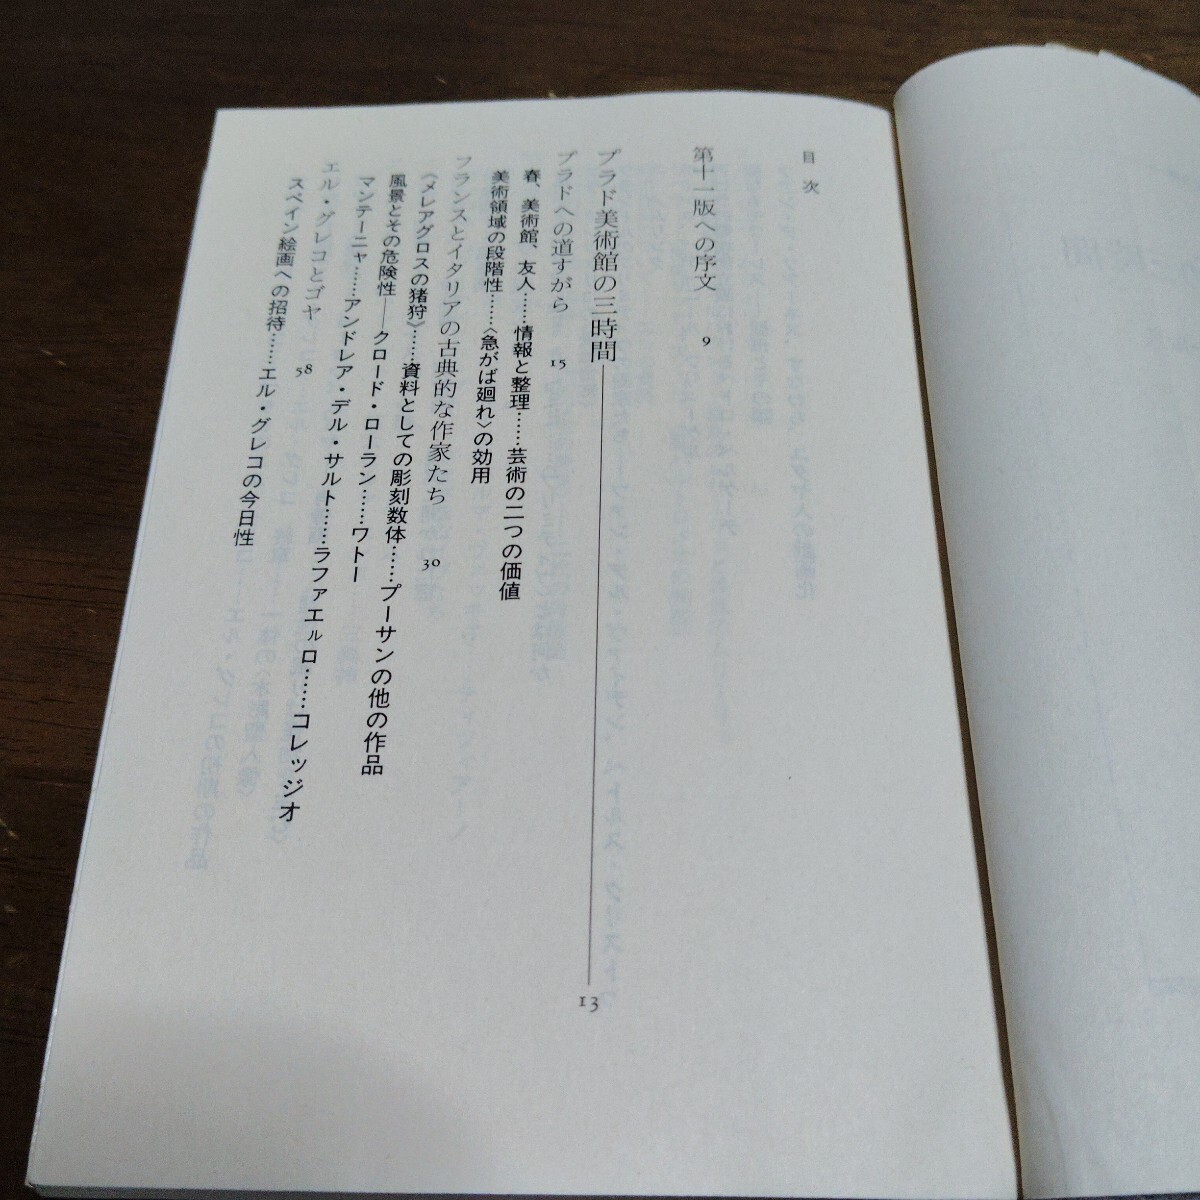 目次
第十一版への序文 9
プラド美術館の三時間 13
プラドへの道すがら 15
春、美術館、友人……情報と整理……芸術の二つの価値
美術領域の段階性……〈急がば廻れ〉の効用
フランスとイタリアの古典的な作家たち 30
〈メレアグロスの猪狩〉……資料としての彫刻数体……プーサンの他の作品
風景とその危険性――クロード・ローラン……ワトー
マンテーニャ……アンドレア・デル・サルト……ラファエルロ……コレッジオ
エル・グレコとゴヤ 58
スペイン絵画への招待……エル・グレコの今日性